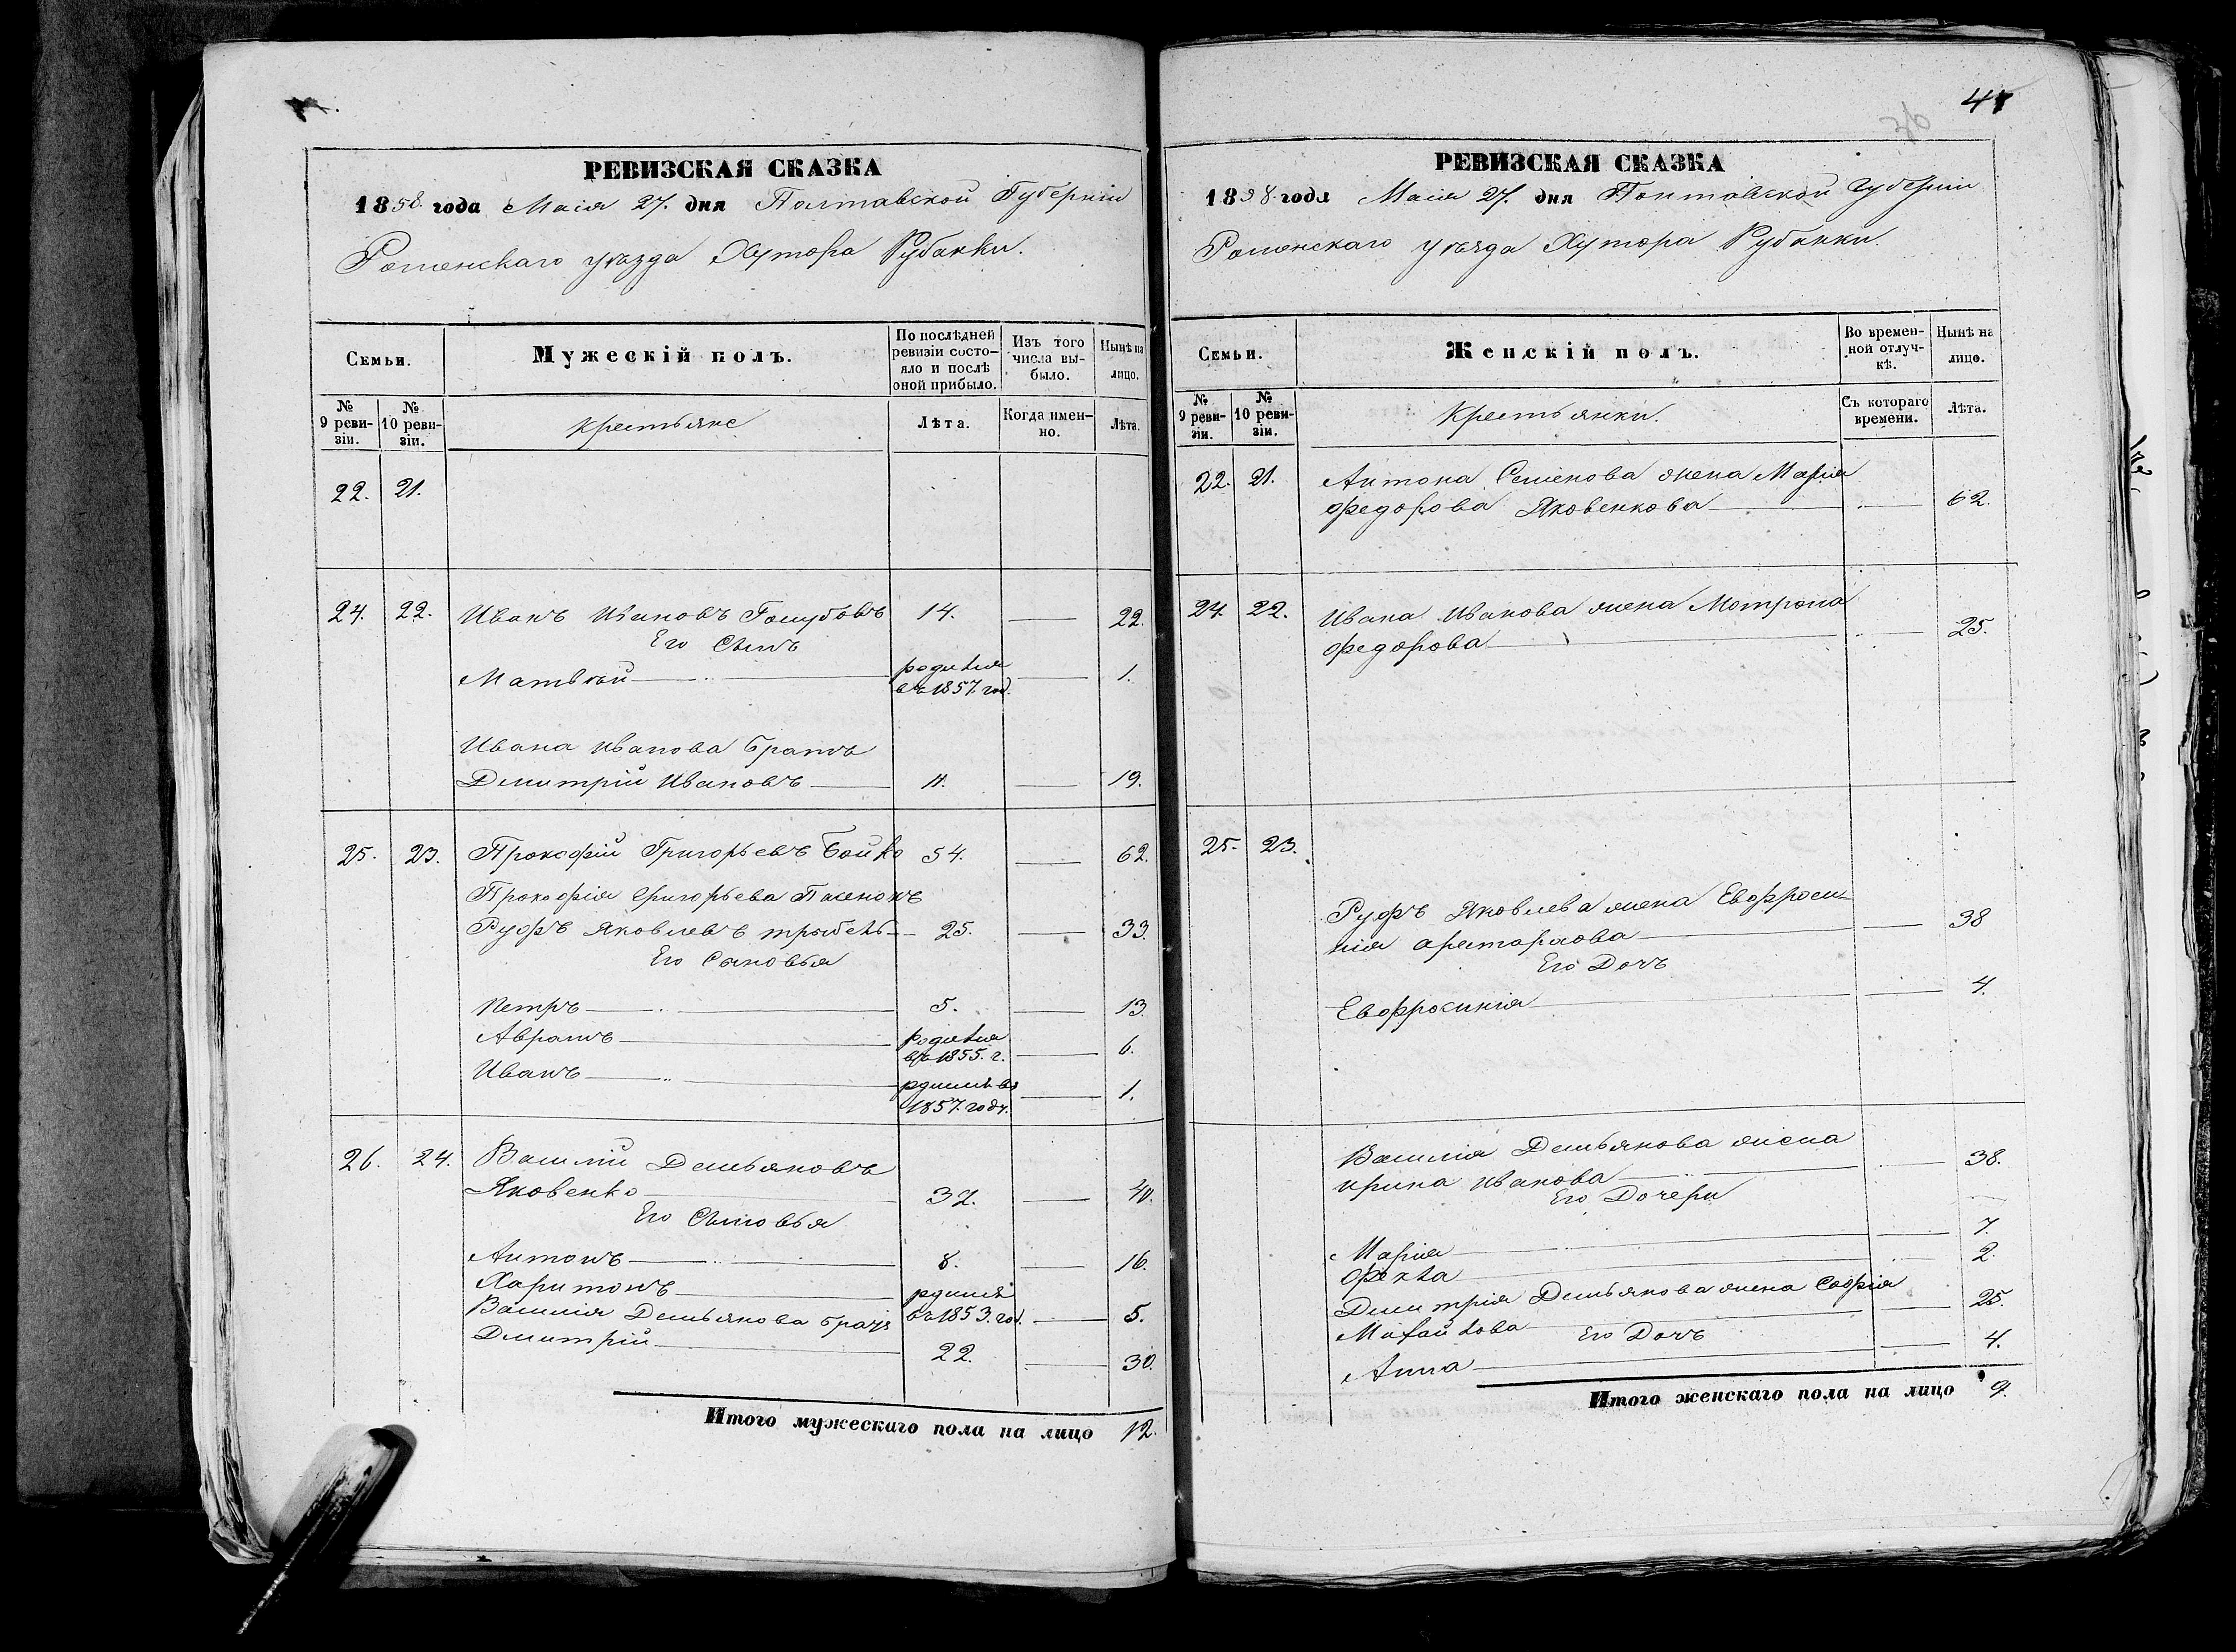 РЕВИЗСКАЯ СКАЗКА
1858 года Маія 27. дня Полтавской Губерніи
Роменскаго уѣзда Хутора Рубанки.
Семьи.
Мужескій полъ.
По послѣдней ревизіи состо-яло и послѣ оной прибыло.
Изъ того числа вы-было.
Нынѣ на лицо.
№ 9 реви-зіи.
№ 10 реви-зіи.
Крестьяне
Лѣта.
Когда имен-но.
Лѣта.
22. 21.
24. 22. Иванъ Ивановъ Голубовъ 14. 22.
Его Сынъ
Матвѣй родился въ 1857. год. 1.
Ивана Иванова братъ
Дмитрій Ивановъ 11. 19.
25. 23. Прокофій Григорьевъ Бойко 54. 62.
Прокофія Григорьева
Руфъ Яковлевъ 25. 33.
Его Сыновья
Петръ 5. 13.
Аврамъ родился въ 1855. г. 6.
Иванъ родился въ 1857. году. 1.
26. 24. Василій Демьяновъ
Яковенко 32. 40.
Его Сыновья
Антонъ 8. 16.
Харитонъ родился въ 1853. год. 5.
Василія Демьянова братъ
Дмитрій 22. 30.
Итого мужескаго пола на лицо 12.
36
РЕВИЗСКАЯ СКАЗКА
1858 года Маія 27. дня Полтавской Губерніи
Роменскаго уѣзда Хутора Рубанки.
Семьи.
Женскій полъ.
Во времен-ной отлуч-кѣ.
Нынѣ на лицо.
№ 9 реви-зіи.
№ 10 реви-зіи.
Крестьянки.
Съ котораго времени.
Лѣта.
22. 21. Антона Семенова жена Марія
Федорова Яковенкова 62.
24. 22. Ивана Иванова жена Мотрона
Федорова 25.
25. 23.
Руфъ Яковлева жена Евфроси-
нія 38
Его Дочь
Евфросинія 4.
Василія Демьянова жена 38.
Ирина Иванова
Его Дочери
Марія 7.
Фекла 2.
Дмитрія Демьянова жена Софія
Михайлова 25.
Его Дочь
Анна 4.
Итого женскаго пола на лицо 9.